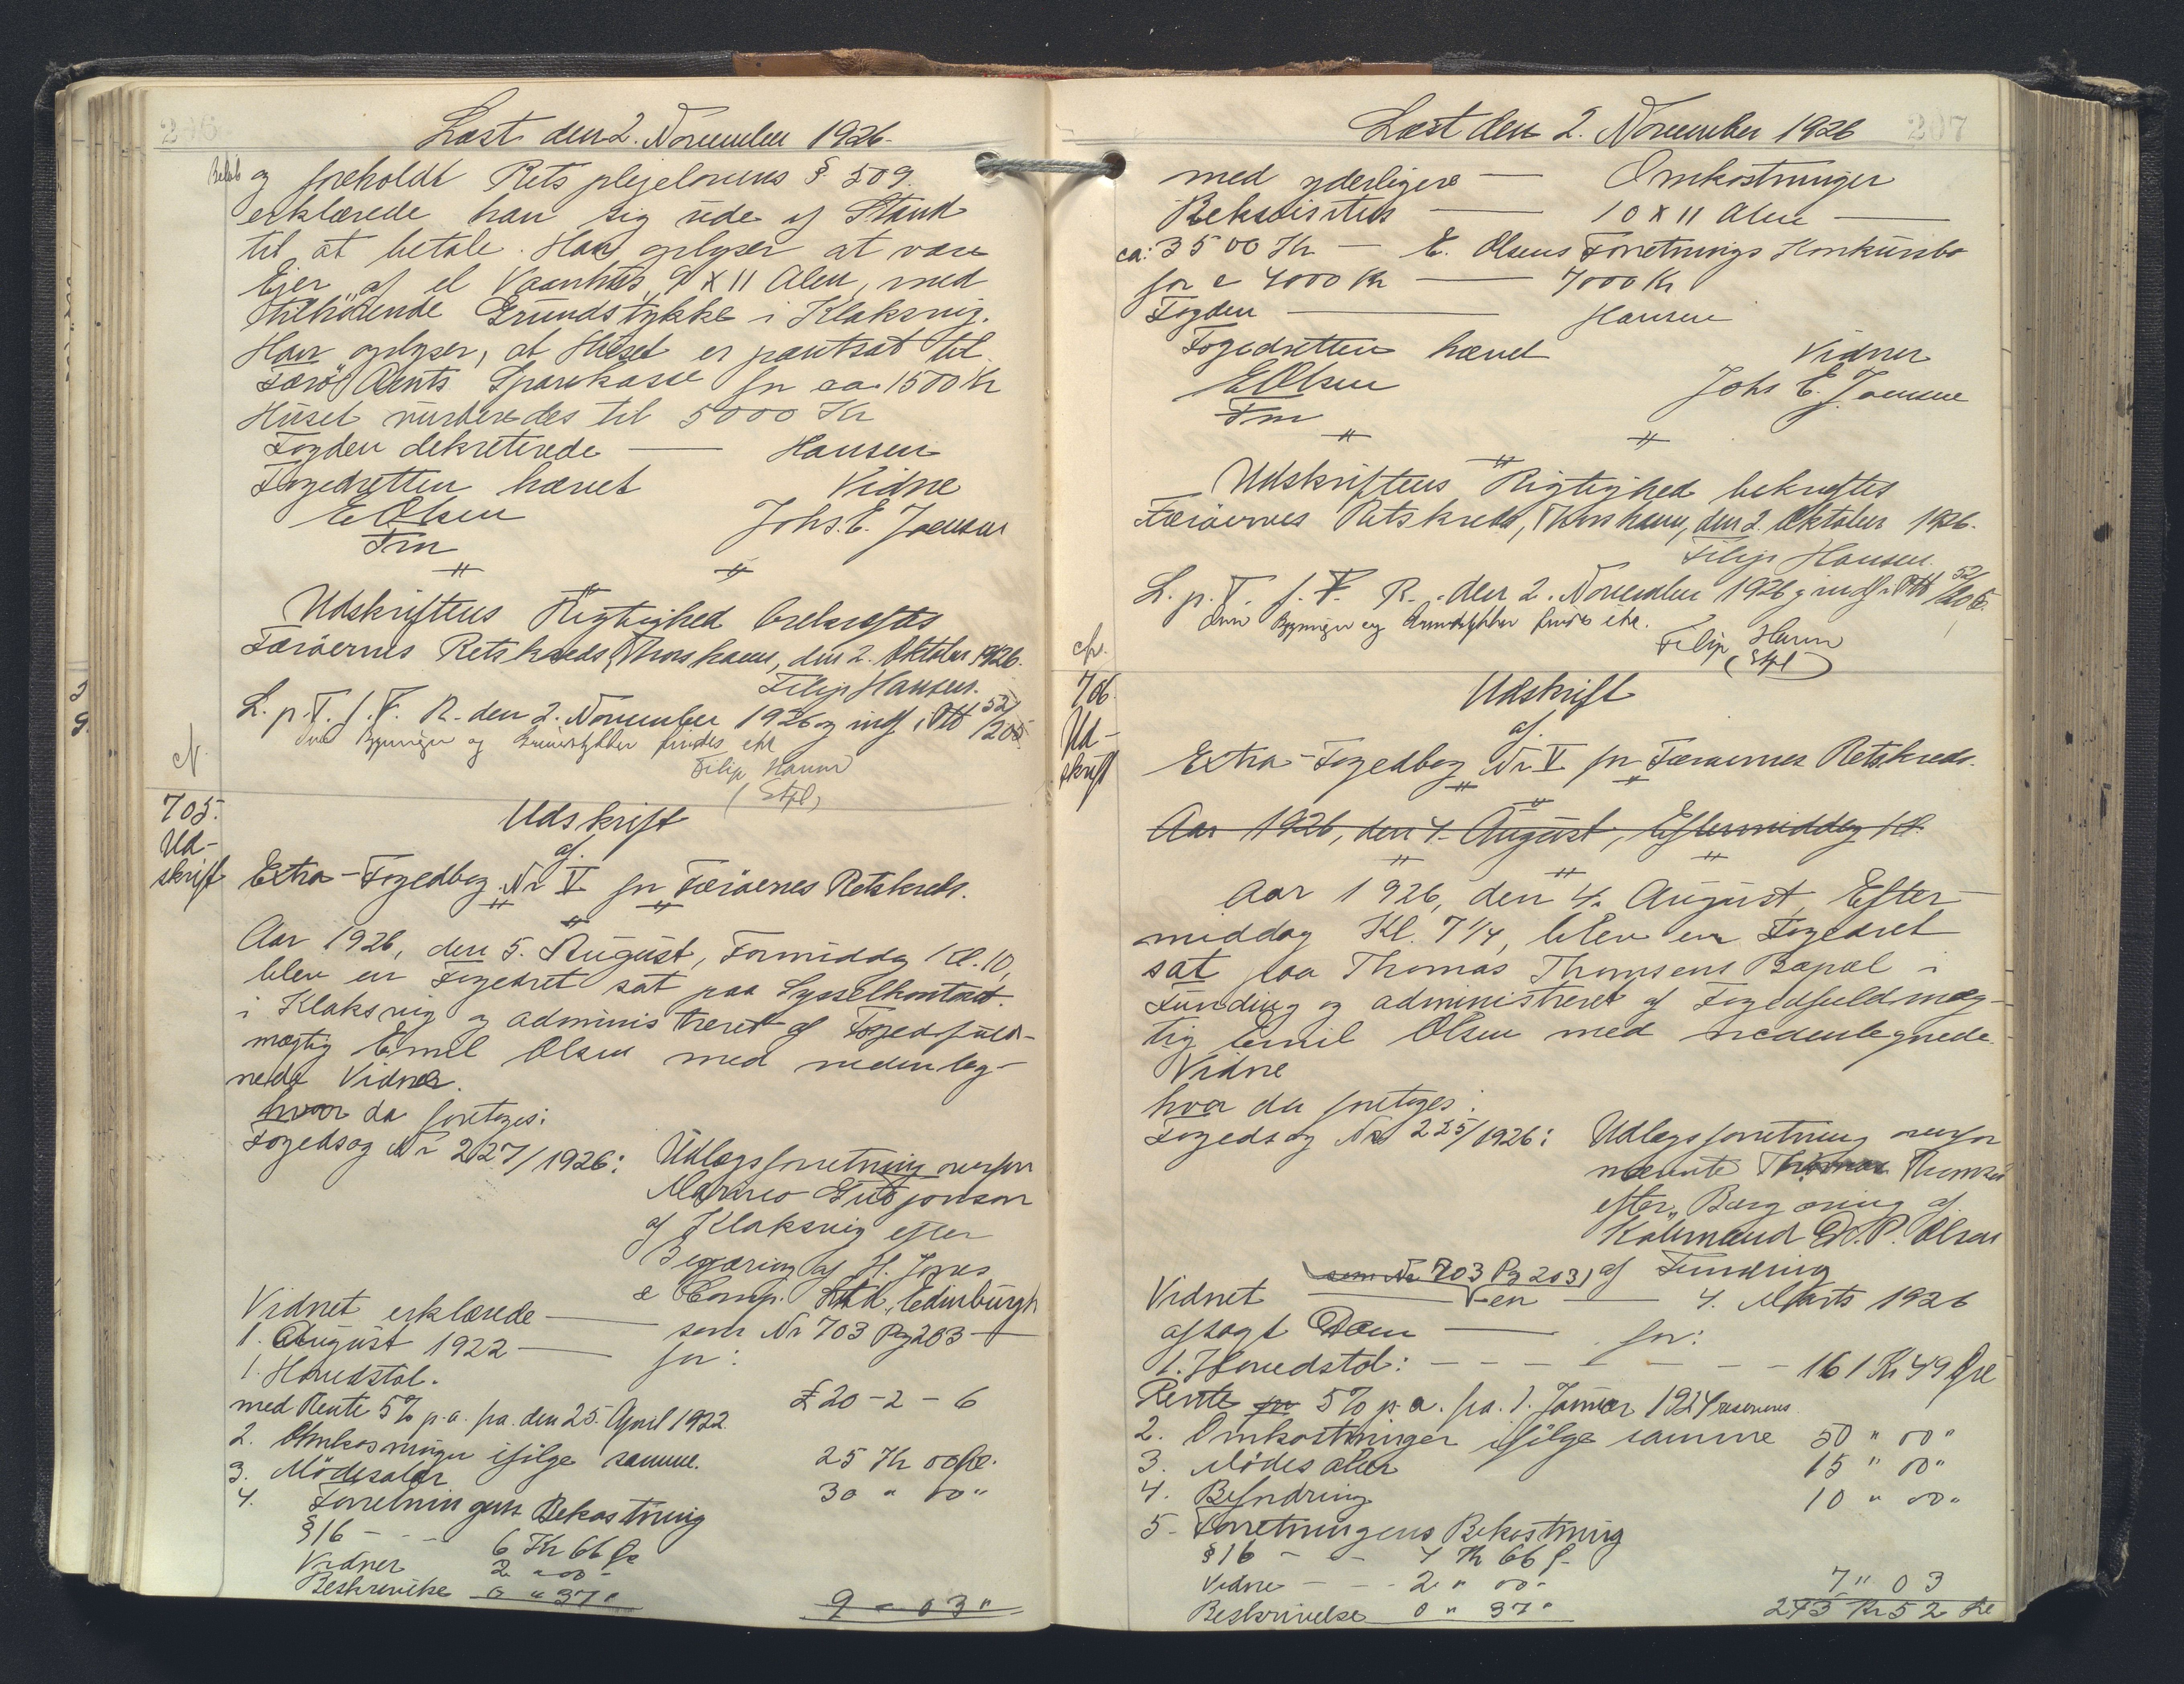 Læst den 2. November 1926.
Beløb og foreholdt Retsplejelovens § 509.
erklærede han sig ude af Stand
til at betale. Han oplyser at være
Ejer af et Vaanhus, 9 x 11 Alen, med
tilhörende Grundstykke i Klaksvig.
Han oplyser, at Huset er pantsat til
Færø Amts Sparekasse for ca. 1500 Kr
Huset vurderedes til 5000 Kr
Fogden dekreterede — Hansen
Fogedretten hævet Vidne
E Olsen Johs. E. Joensen
Fm
Udskriftens Rigtighed bekræftes
Færöernes Retskreds, Thorshavn, den 2. Oktober 1926.
Filip Hansen.
L. p. T. f. F. R. den 2. November 1926 og indf. i Ptt 52/205
dne Bygninger og Grundstykker findes ikke
Filip Hansen
(Stpl)
N.
705.
Ud-
skrift
Udskrift
af
Extra-Fogedbog Nr V for Færöernes Retskreds.
Aar 1926, den 5. August, Formiddag Kl. 10,
blev en Fogedret sat paa Sysselkontoret
i Klaksvig og administreret af Fogedfuld-
mægtig Emil Olsen med undenteg-
nede Vidner.
hvor da foretoges:
Fogedsag Nr 227/1926: Udlægsforretning overfor
Guttjonson
af Klaksvig efter
Begæring af H. Jones
& Comp. Ltd., Edinburgh
Vidnet erklærede — som Nr 703 Pg 203 —
1. August 1922 — for:
1. Hovedstol. £ 20 - 2 - 6
med Rente 5% p.a. fra den 25. April 1922
2. Omkosninger ifølge samme. 25 Kr 00 Øre.
3. Mödesalær 30 " 00 "
4. Forretningens Bekostning
§ 16 - - - 6 Kr 66 Øre
Vidner 2 " 00 "
Beskrivelse 0 " 37 " 9 " 03 "
Læst den 2. November 1926 207
med yderligere — Omkostninger
Rekvisitus — 10 x 11 Alen —
ca: 3500 Kr — E. Olsens Forretnings Konkursbo
for c 4000 Kr — 7000 Kr
Fogden — Hansen
Fogedretten hævet Vidner
E Olsen Johs E. Joensen
Fm
Udskriftens Rigtighed bekræftes
Færöernes Retskreds, Thorshavn, den 2. Oktober 1926.
Filip Hansen.
L. p. T. f. F. R. den 2. November 1926 og indf. i Ptt 52/206.
dne Bygninger og Grundstykker findes ikke.
Filip Hansen
(Stpl)
706.
Ud-
skrift
Udskrift
af
Extra-Fogedbog Nr V for Færöernes Retskreds.
Aar 1926, den 4. August, Eftermiddag Kl.
Aar 1926, den 4. August, Efter-
middag Kl. 7 1/4, blev en Fogedret
sat paa Thomas Thomsens Bopæl i
Funding og administreret af Fogedfuldmæg-
tig Emil Olsen med nedentegnede
Vidne
hvor da foretoges:
Fogedsag Nr 225/1926: Udlægsforretning overfor
nævnte Thomas Thomsen
efter Begæring af
Købmand P. Olsen
som Nr 703 Pg 203) af Funding
Vidnet — en — 4. Marts 1926
afsagt Dom — for:
1. Hovedstol: - - - - - - - 161 Kr 49 Øre
Rente for 5% p.a. fra 1. Januar 1924 reserveres
2. Omkostninger ifølge samme 50 " 00 "
3. Mødesalær 15 " 00 "
4. Befordring 10 " 00 "
5. Forretningens Bekostning
§ 16 - - 4 Kr 66 Ø
Vidne - - - 2 " 00 "
Beskrivelse 0 " 37 " 7 " 03
243 Kr 52 Øre